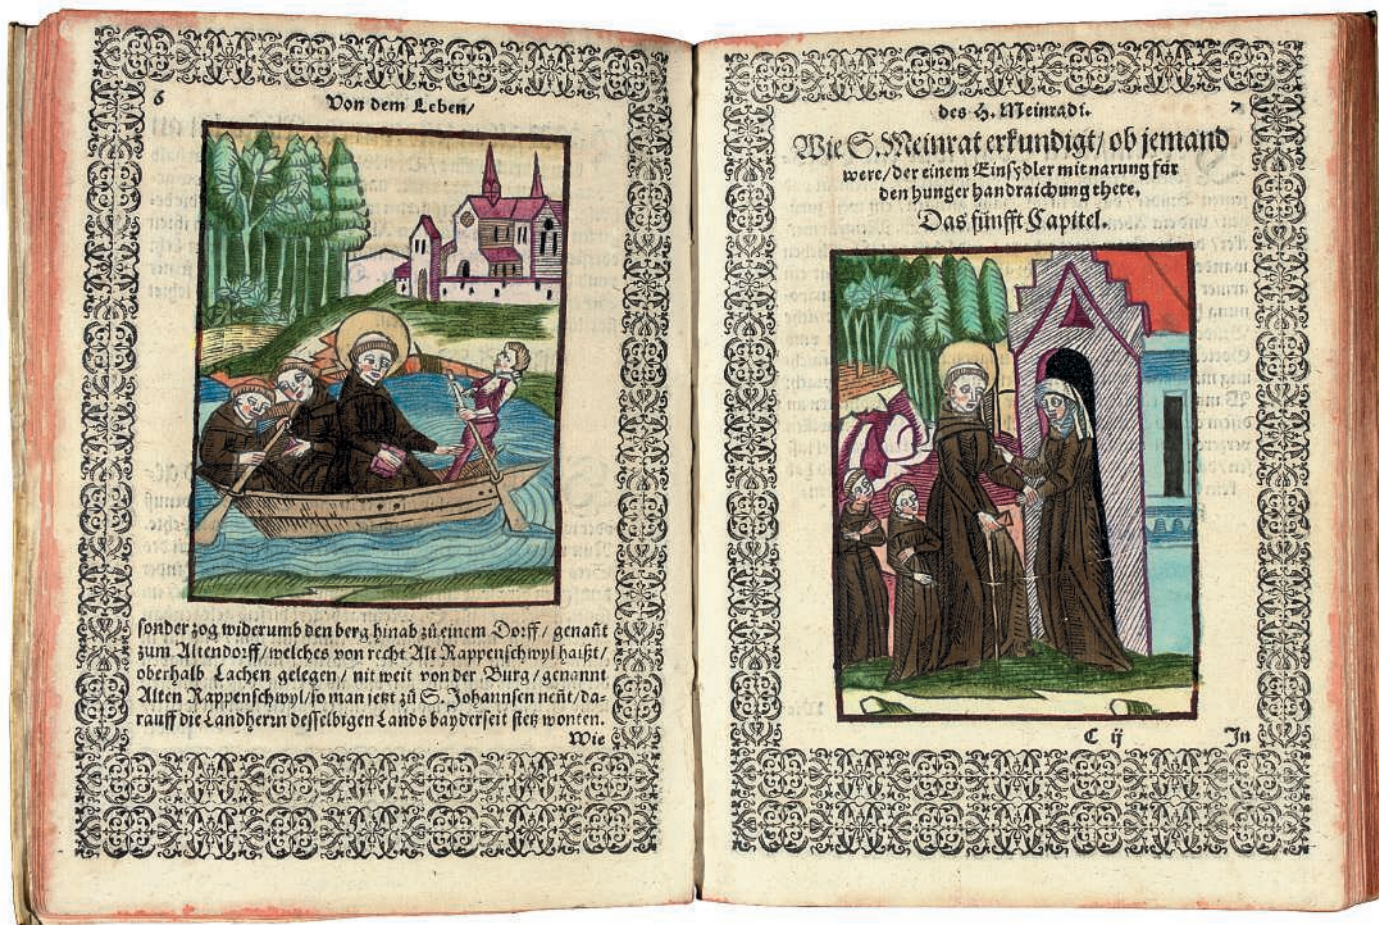 6
Von dem Leben/
sonder zog widerumb den berg hinab zů einem Dorff/ genañt
zum Altendorff/welches von recht Alt Rappenschwyl haißt/
oberhalb Lachen gelegen/ nit weit von der Burg/genannt
Alten Rappenschwyl/so man jetzt zů S. Johannsen neñt/da-
rauff die Landherrn desselbigen Lands bayderseit stetz wonten.
Wie
des H. Meinradi.
7
Wie S. Meinrat erkundigt/ ob jemand
were/der einem Einsydler mit narung für
den hunger handraichung thete.
Das fünfft Capitel.
C ij
In